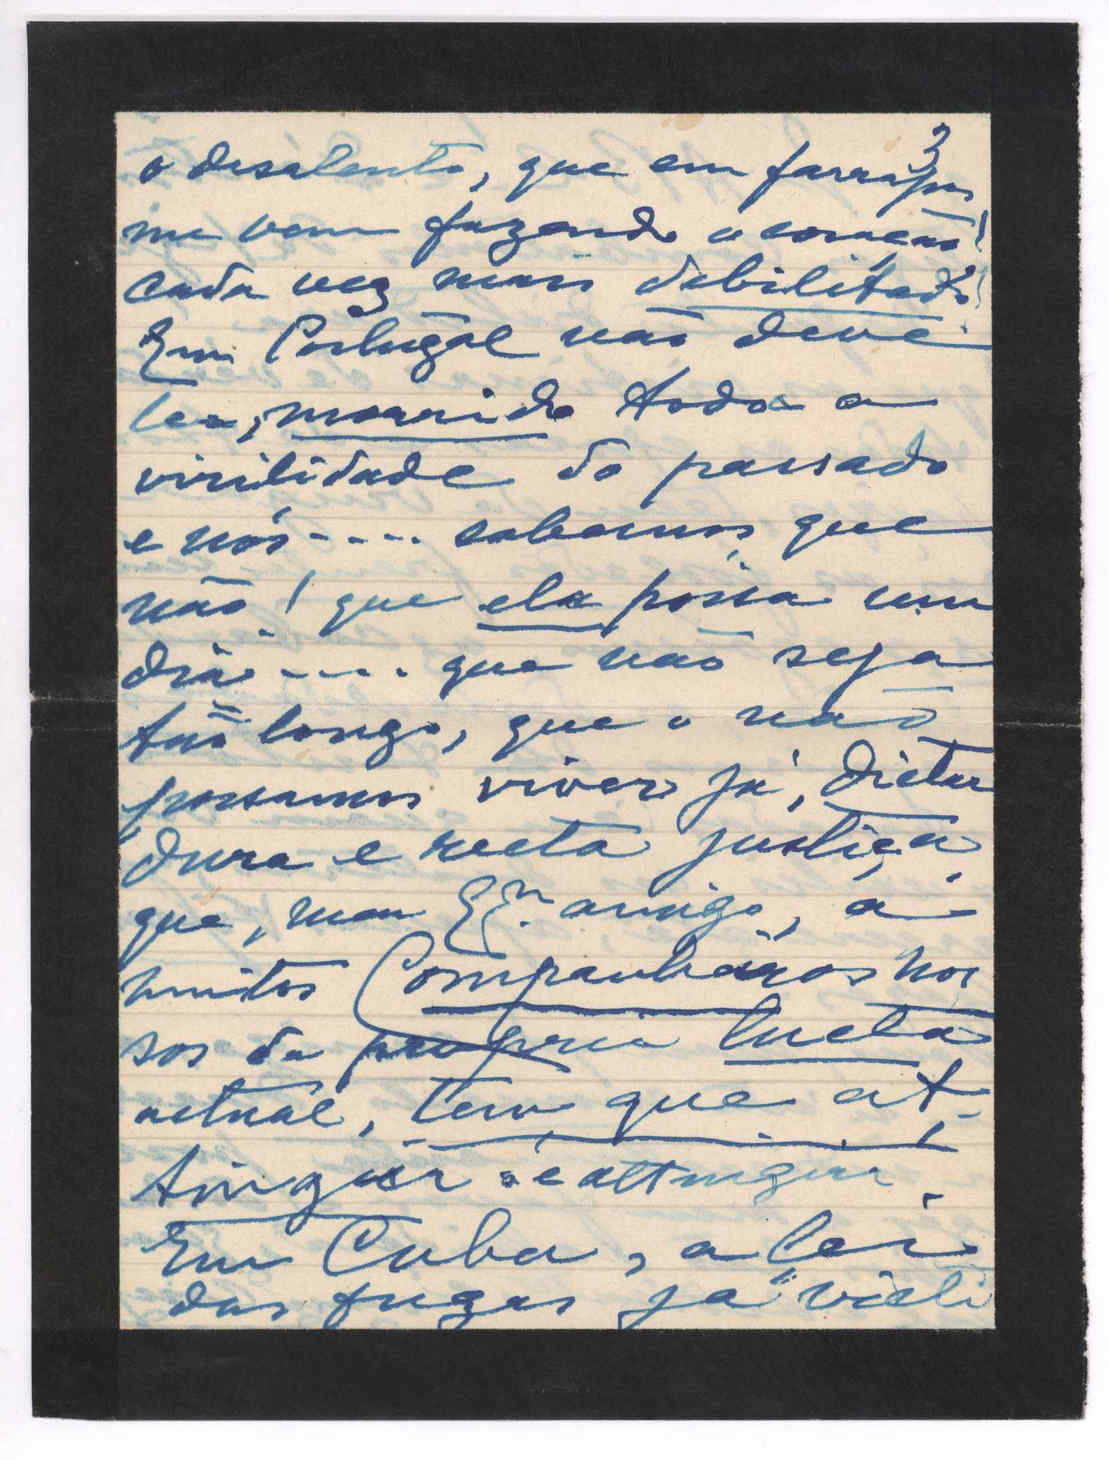 3
o desalento, que em farrapos
me vem fazendo o coração!
cada vez mais debilitado!
Em Portugal não deve
ter, morrido toda a
virilidade do passado
e nós.... sabemos, que
não! que ela possa um
dia.... que não seja
tão longo, que o não
possamos viver já, dicta
dura e recta justiça,
que, meu Exm. amigo, a
muitos Companheiros nos
sos da propria lucta
actual, tem que at-
tinguir e attinguir.
Em Cuba, a lei
das fugas já